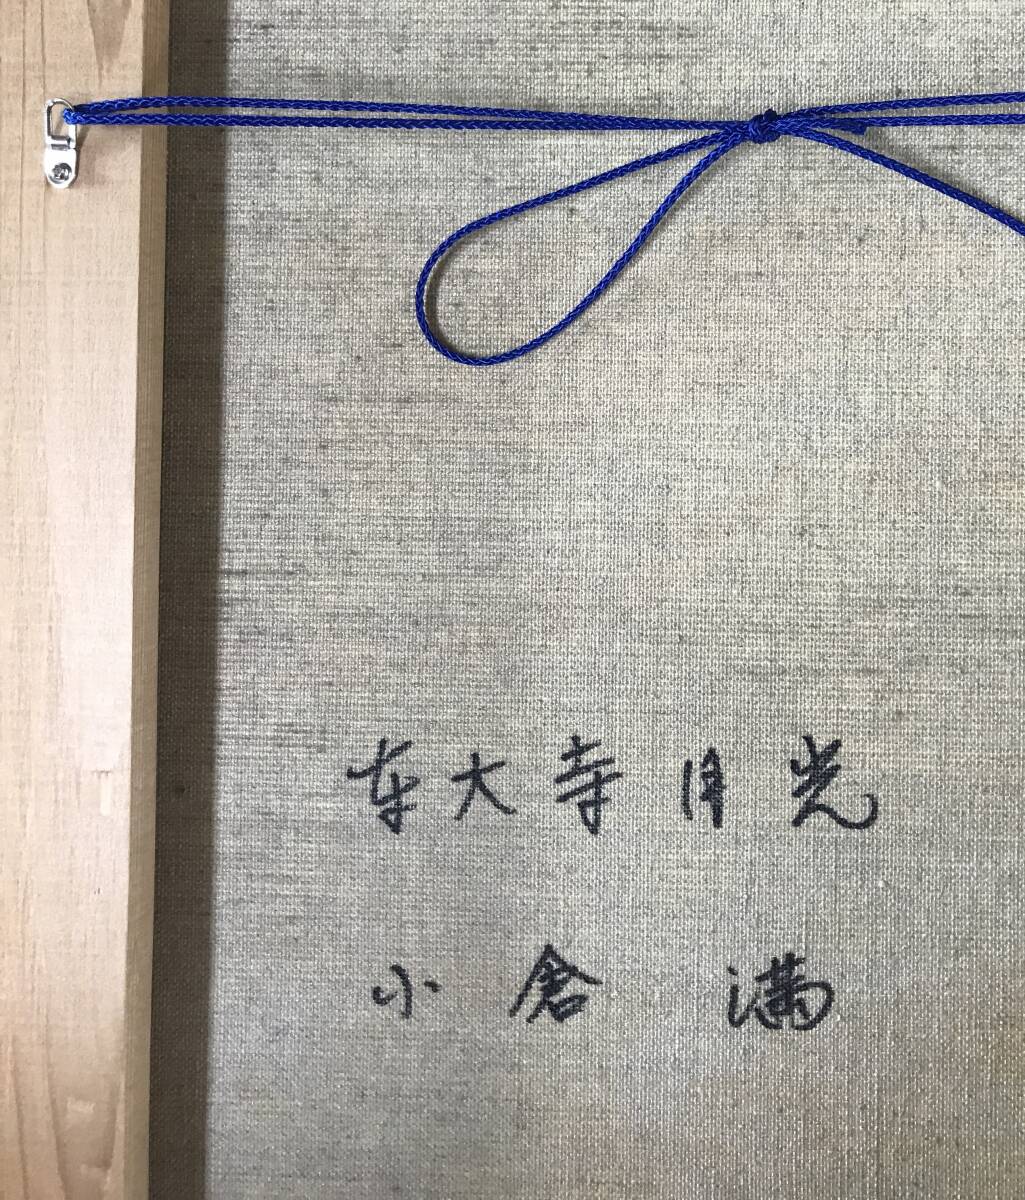 东大寺 月光
小倉 満